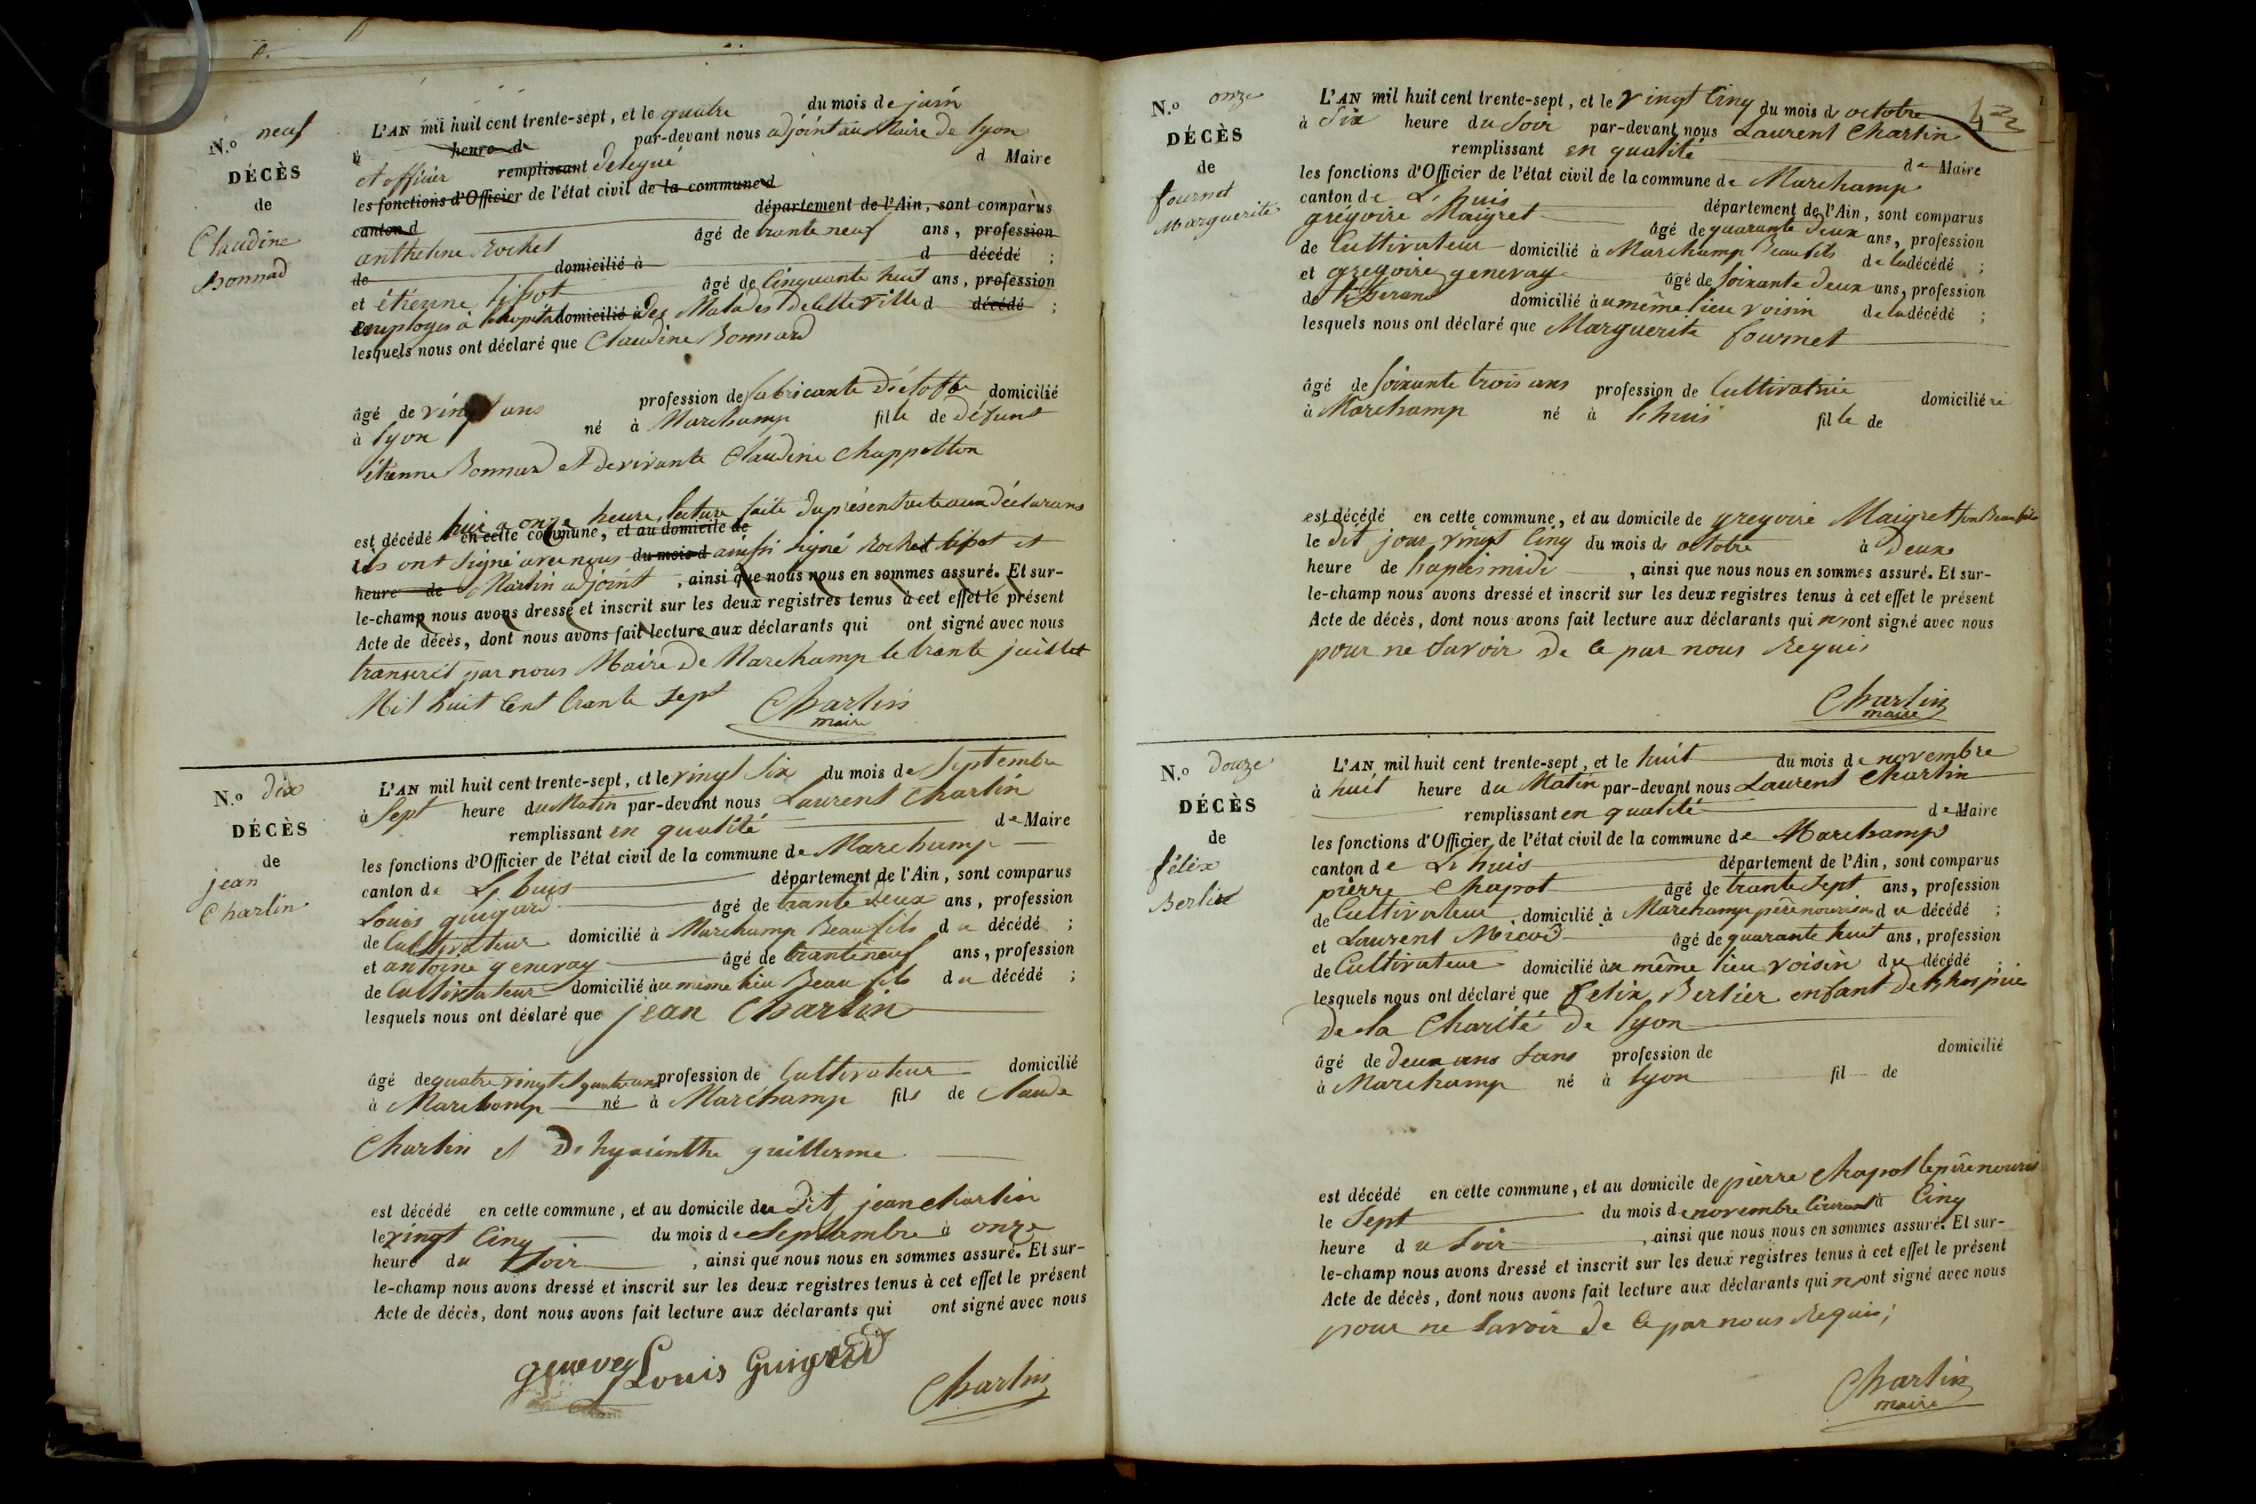 N.o neuf
DÉCÈS
de
Claudine
Bonnad
L'AN mil huit cent trente-sept, et le quatre du mois de juin
à heure d par-devant nous adjoint au Maire de lyon
et officier remplissant delegué d Maire
les fonctions d'Officier de l'état civil de la commune d
canton d département de l'Ain, sont comparus
anthelme Rochet âgé de trante neuf ans, profession
de domicilié à d décédé ;
et étienne âgé de Cinquante huit ans, profession
Employes à domicilié à des Malades de cette ville d décédé ;
lesquels nous ont déclaré que Claudine Bonnard
âgé de vingt ans profession de fabricante d'étoffe domicilié
à lyon né à Marchamp fille de défunt
étienne Bonnard et de vivante Claudine Chappotton
est décédé en cette commune, et au domicile de
hui a onze heure, lecture faite du présent acte aux déclarans
ils ont signé avec nous du mois d ainssi signé Rochet et
heure de Martin adjoint, ainsi que nous nous en sommes assuré. Et sur-
le-champ nous avons dressé et inscrit sur les deux registres tenus à cet effet le présent
Acte de décès, dont nous avons fait lecture aux déclarants qui ont signé avec nous
transcrit par nous Maire de Marchamp le trante juillet
Mil huit Cent trante sept
Charlin
maire
N.o dix
DÉCÈS
de
jean
Charlin
L'AN mil huit cent trente-sept, et le vingt Six du mois de Septembre
à Sept heure du Matin par-devant nous Laurent Charlin
remplissant en qualité de Maire
les fonctions d'Officier de l'état civil de la commune de Marchamp
canton de L'huis département de l'Ain, sont comparus
Louis guigard âgé de trante deux ans, profession
de Cultivateur domicilié à Marchamp Beau fils du décédé ;
et antoine genevay âgé de trante neuf ans, profession
de Cultivateur domicilié àu même lieu Beau fils du décédé ;
lesquels nous ont déclaré que jean Charlin
âgé de quatre vingt et quatre ans profession de Cultivateur domicilié
à Marchamp né à Marchamp fils de Claude
Charlin et De hyacinthe guillerme
est décédé en cette commune, et au domicile du dit jean charlin
le vingt Cinq du mois de Septembre à onze
heure du Soir, ainsi que nous nous en sommes assuré. Et sur-
le-champ nous avons dressé et inscrit sur les deux registres tenus à cet effet le présent
Acte de décès, dont nous avons fait lecture aux déclarants qui ont signé avec nous
genevey Louis Guigard
Charlin
N.o onze
DÉCÈS
de
fournet
Marguerite
L'AN mil huit cent trente-sept, et le vingt Cinq du mois d octobre
à Six heure du Soir par-devant nous Laurent Charlin
remplissant en qualité de Maire
les fonctions d'Officier de l'état civil de la commune de Marchamp
canton de L'huis département de l'Ain, sont comparus
grégoire Maigret âgé de quarante deux ans, profession
de Cultivateur domicilié à Marchamp Beau fils de la décédé ;
et gregoire genevay âgé de Soixante deux ans, profession
de tisserand domicilié àu même lieu voisin de la décédé ;
lesquels nous ont déclaré que Marguerite fournet
âgé de soixante trois ans profession de Cultivatrice domicilié
à Marchamp né à L'huis fille de
est décédé en cette commune, et au domicile de gregoire Maigret son Beau fils
le dit jour vingt Cinq du mois d octobre à Deux
heure de hapres midi, ainsi que nous nous en sommes assuré. Et sur-
le-champ nous avons dressé et inscrit sur les deux registres tenus à cet effet le présent
Acte de décès, dont nous avons fait lecture aux déclarants qui n'ont signé avec nous
pour ne Savoir de Ce par nous Requis
Charlin
maire
N.o douze
DÉCÈS
de
félix
Berlier
L'AN mil huit cent trente-sept, et le huit du mois de novembre
à huit heure du Matin par-devant nous Laurent Charlin
remplissant en qualité de Maire
les fonctions d'Officier de l'état civil de la commune de Marchamp
canton de L'huis département de l'Ain, sont comparus
pierre Chapot âgé de trante Sept ans, profession
de Cultivateur domicilié à Marchamp père du décédé ;
et Laurent âgé de quarante huit ans, profession
de Cultivateur domicilié àu même lieu voisin du décédé ;
lesquels nous ont déclaré que felix Berlier enfant de L'hospice
De la Charité de lyon
âgé de deux ans Sans profession de domicilié
à Marchamp né à lyon fil de
est décédé en cette commune, et au domicile de pierre Chapot le père
le Sept du mois de novembre Courant à Cinq
heure du Soir, ainsi que nous nous en sommes assuré. Et sur-
le-champ nous avons dressé et inscrit sur les deux registres tenus à cet effet le présent
Acte de décès, dont nous avons fait lecture aux déclarants qui n'ont signé avec nous
pour ne Savoir de Ce par nous Requis;
Charlin
maire